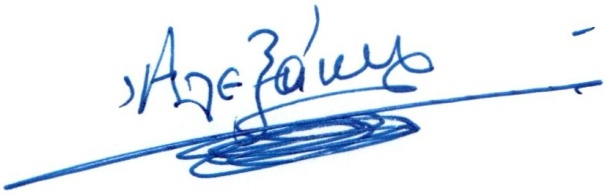 Αλεξάκης